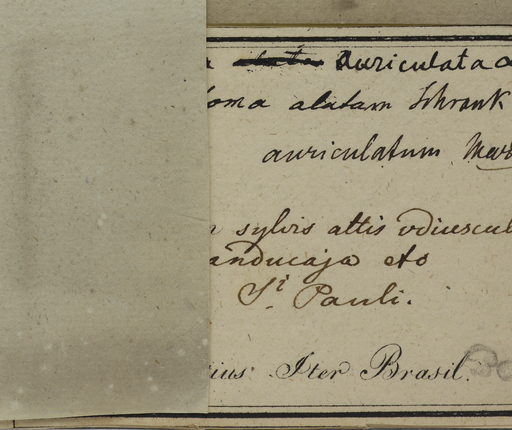 auriculata
oma alatam Schrank
auriculatum Mar
sylvis altis udiuscul
anducaja etc
Sti Pauli.
ius Iter Brasil.